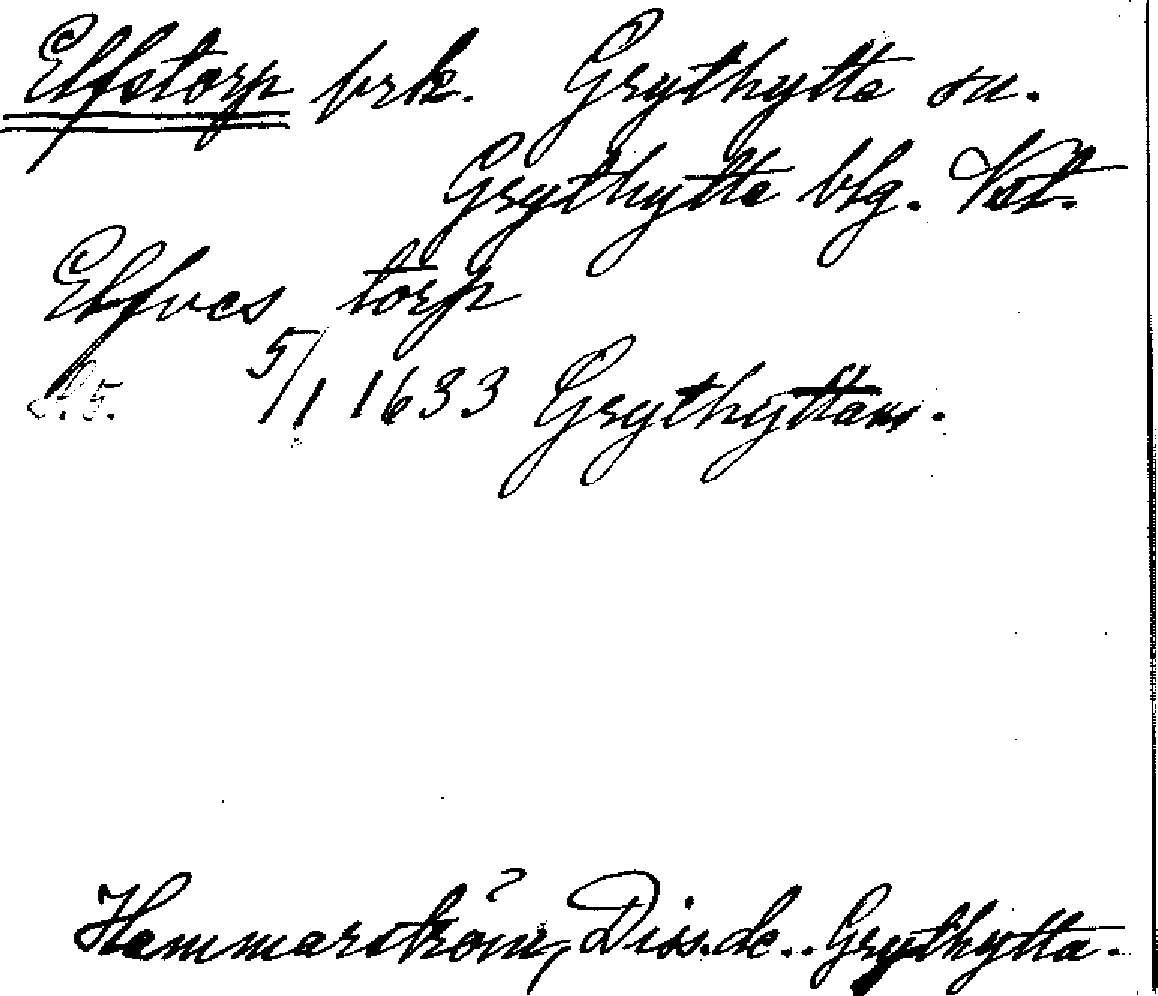 Elfstorp brk. Grythytte sn.
Grythytte blg. Vstl.
Elfves torp
s. 5. 5/1 1633 Grythyttan.
Hammarström, Diss. de.. Grythytta.